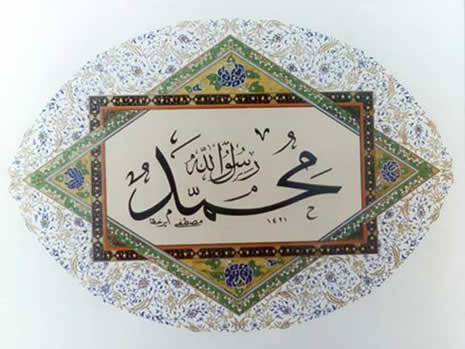 محمد
رسول الله
١٤٢١
مصطفى